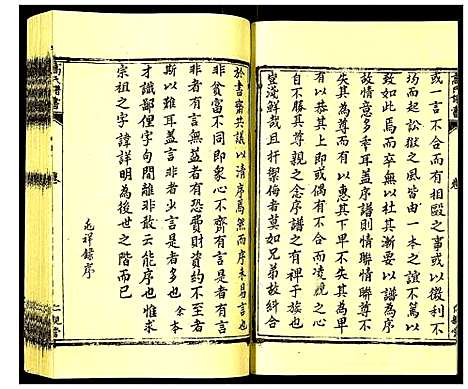 或一言不合而有相毆之事或以汗
太起訟獄之風皆由一本之誼不篤以
故如此焉而卒無以杜其漸要以譜為序
故情意多乖耳蓋序譜則情聯情聯尊不
失其尊而有以惠其下卑不失其為卑
以恭其上即或偶有不合而凌競之心
自不勝其尊親之念序譜之有裨于族也
豈淺鮮哉且扞禦侮者莫如兄弟故糾合
於書齋共議以清序為然而序未易言也
非貧富不同即衆心不齊有言而不至者有
非者有言無益者有恐費財資約不登者
斯以難耳蓋言非難言少言是者多也余本
才識鄙俚字句間離非敢云能序也惟求
宗祖之字諱詳明為後世之階而已
兆祥錄序
高氏譜書
卷